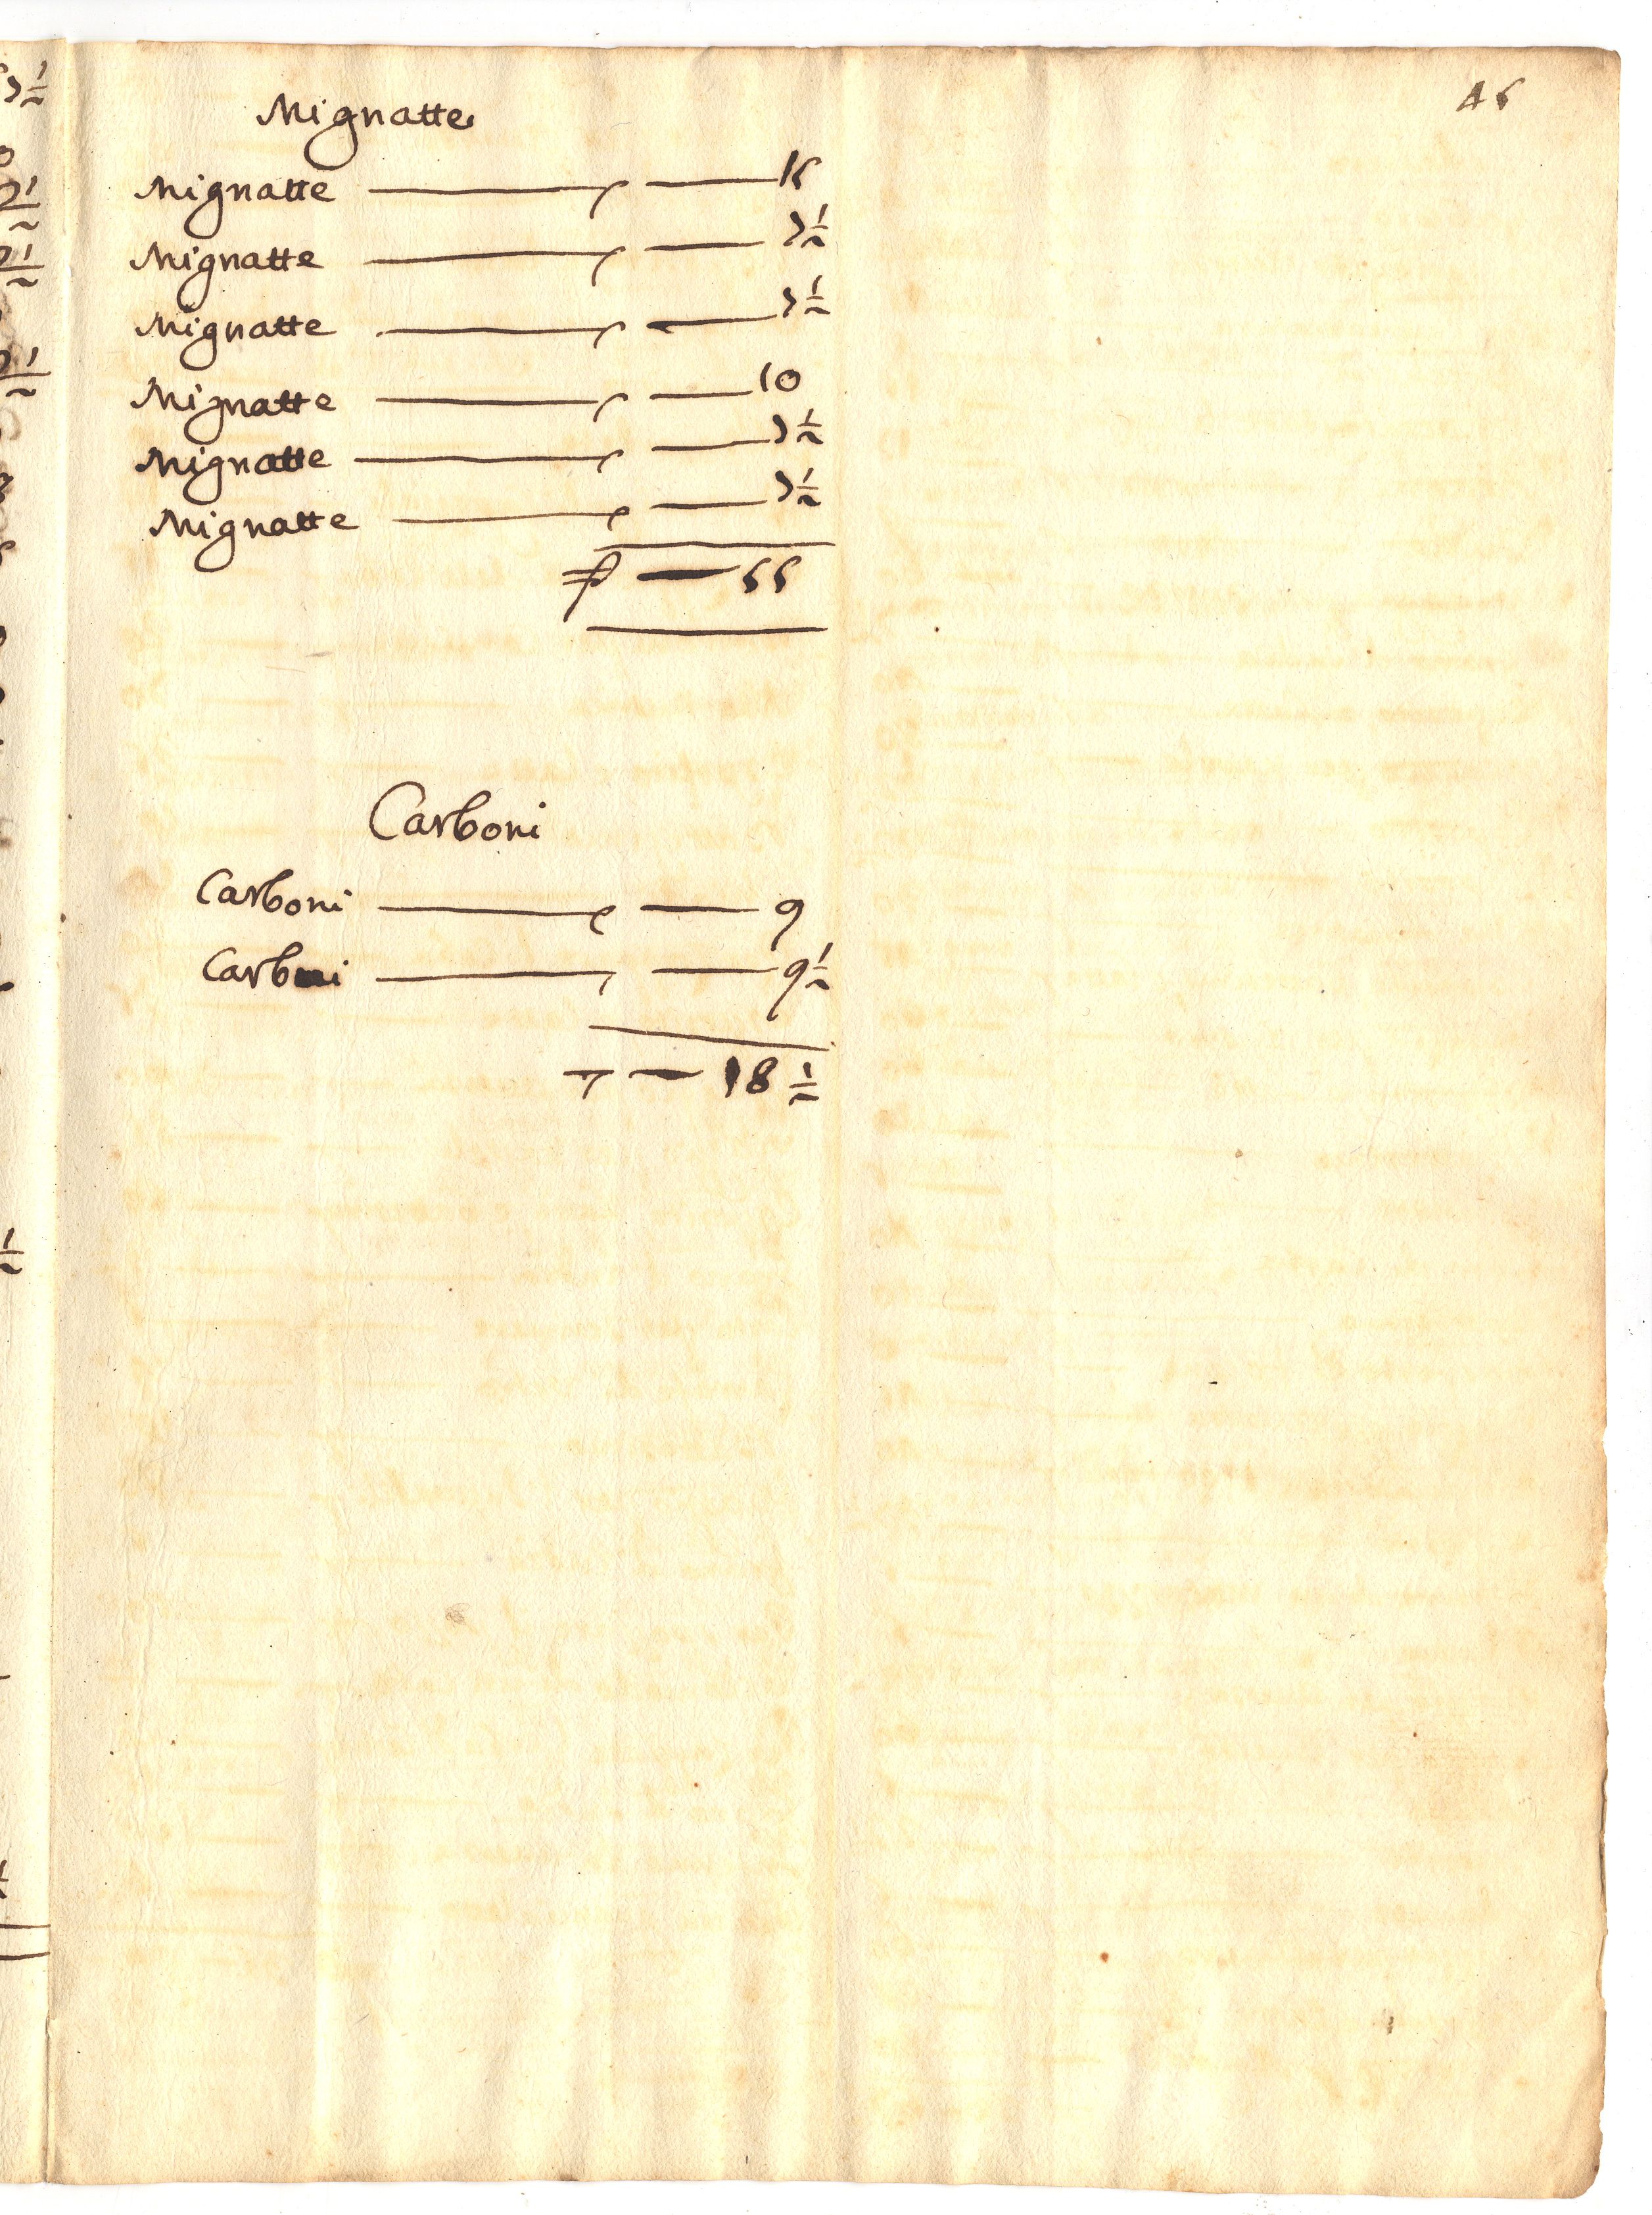 45
Mignatte
Mignatte — — 15
Mignatte — — 7½
Mignatte — — 7½
Mignatte — — 10
Mignatte — — 7½
Mignatte — — 7½
— 55
Carboni
Carboni — — 9
Carboni — — 9½
— — 18½